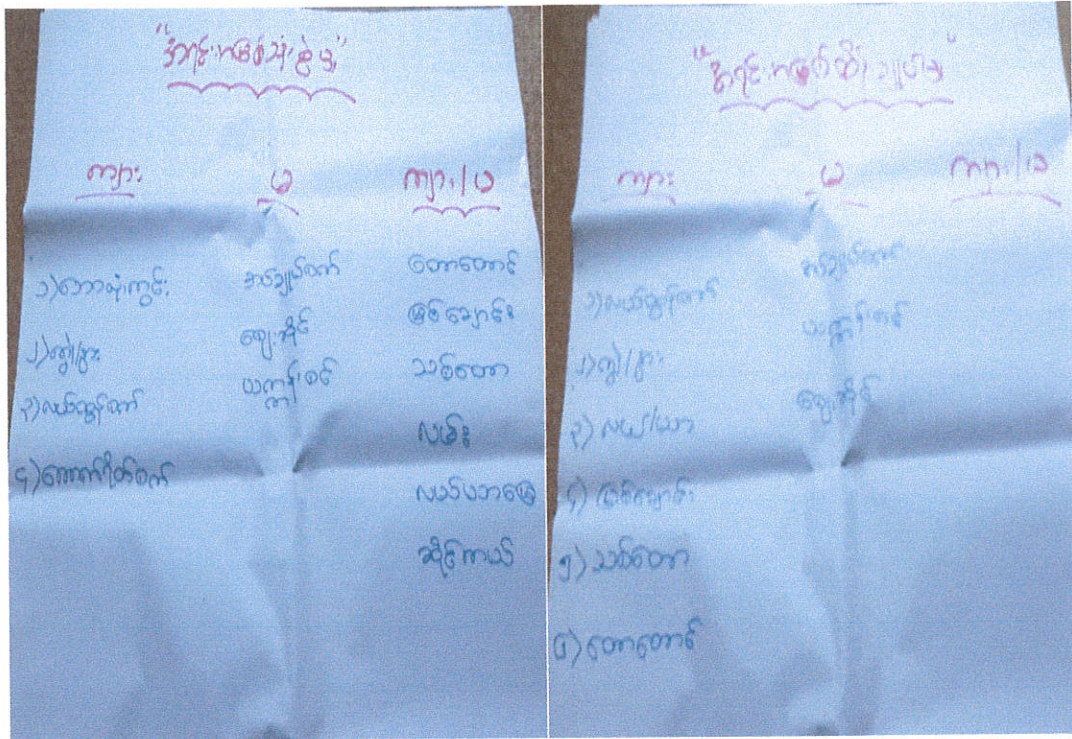 "အရင်းအမြစ်သုံးစွဲမှု"
ကျား မ ကျား/မ
၁) ဘောလုံးကွင်း အပ်ချုပ်စက် တောတောင်
၂) ကျွဲ/နွား ဈေးဆိုင် မြစ်ချောင်း
၃) လယ်ထွန်စက် ယက္ကန်းစင် သစ်တော
၄) ကောက်ရိတ်စက် လမ်း
လယ်ယာမြေ
ဆိုင်ကယ်
"အရင်းအမြစ်ထိန်းချုပ်မှု"
ကျား မ ကျား/မ
၁) လယ်ထွန်စက် အပ်ချုပ်စက်
၂) ကျွဲ/နွား ယက္ကန်းစင်
၃) လယ်/ယာ ဈေးဆိုင်
၄) မြစ်ချောင်း
၅) သစ်တော
၆) တောတောင်